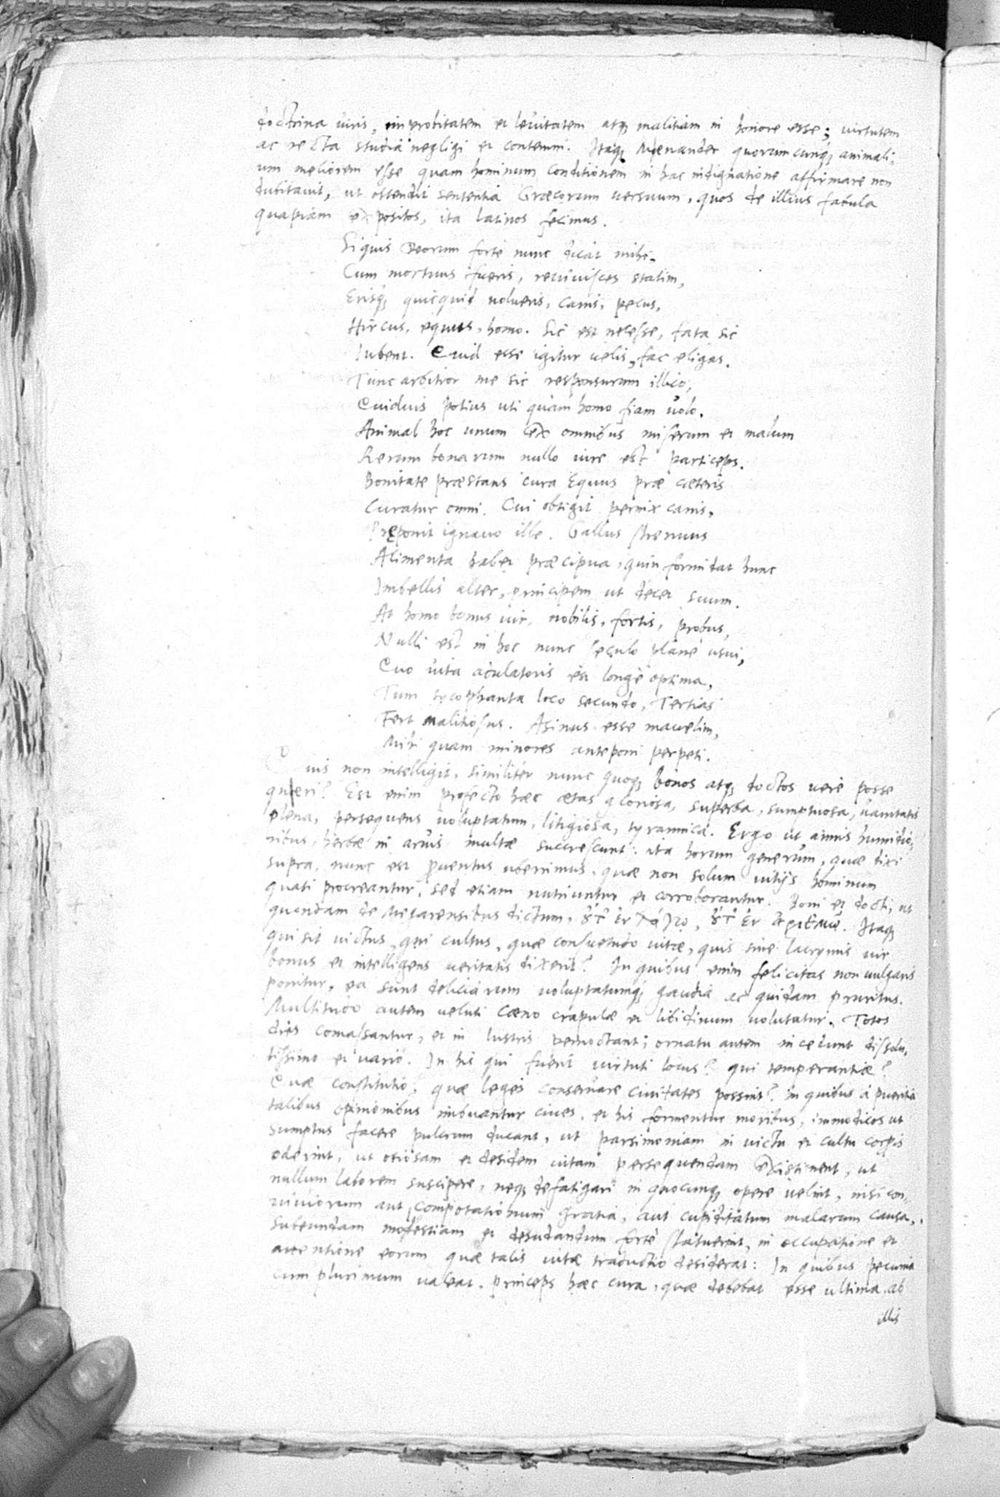 doctrina viris, improbitatem et levitatem atq; malitiam in honore esse; virtutem
ac recta studia negligi et contemni. Itaq; Menander quorumcunq; animali-
um meliorem esse quam hominum conditionem in hac indignatione affirmare non
dubitavit, ut ostendit sententia Græcorum versuum, quos de illius fabula
quapiam expositos, ita latinos fecimus.
Siquis Deorum forte nunc dicat mihi.
Cum mortuus fueris, reviuisces statim,
Erisq; quicquid volueris, canis, pecus,
Hircus, equus, homo. Sic est necesse, fata sic
Iubent. Quid esse igitur velis, fac eligas.
Tunc arbitror me sic responsurum illico,
Quiduis potius uti quàm homo fiam volo.
Animal hoc unum ex omnibus miserum et malum
Rerum bonarum nullo iure est particeps.
Bonitate præstans cura Equus præ cæteris
Curatur omni. Cui obtigit pernix canis,
Preponit ignavo ille. Gallus strenuus
Alimenta habet præcipua, quin formidat hunc
Imbellis alter, principem ut decet suum.
At homo bonus vir, nobilis, fortis, probus,
Nulli est in hoc nunc seculo planè usui,
Quo vita adulatoris est longè optima,
Tum sycophanta loco secundo, Tertias
Fert malitiosus. Asinus esse mavelim,
Mihi quam minores anteponi perpeti.
Quis non intelligit, similiter nunc quoq; bonos atq; doctos verè posse
queri? Est enim profecto hæc ætas gloriosa, superba, sumptuosa, vanitatis
plena, persequens voluptatum, litigiosa, tyrannica. Ergo ut annis humidio-
ribus, herbæ in arvis multæ succrescunt: ita horum generum, quæ dixi
supra, nunc est proventus uberrimus, quæ non solum vitijs hominum
quasi procreantur, sed etiam nutriuntur et corroborantur. Boni et docti, ut
quondam de Megarensibus dictum, οὔτ' ἐν λόγῳ, οὔτ' ἐν ἀριθμῷ. Itaq;
qui sit victus, qui cultus, quæ consuetudo vitæ, quis sine lacrymis vir
bonus et intelligens veritatis dixerit? In quibus enim felicitas non vulgaris
ponitur, ea sunt deliciarum voluptatumq; gaudia ac quidam pruritus.
Multitudo autem veluti cæno crapulæ et libidinum volutatur. Totos
dies comassantur, et in lustris pernoctant; ornatu autem incedunt dissolu-
tissimo et vario. In his qui fuerit virtuti locus? qui temperantiæ?
Quæ constitutio, quæ leges conservare civitates possint? In quibus à pueritia
talibus opinionibus imbuantur cives, et his formentur moribus, immodicos ut
sumptus facere pulcrum ducant, ut parsimoniam in victu et cultu corporis
oderint, ut otiosam et desidem vitam persequendam existiment, ut
nullum laborem suscipere, neq; defatigari in quocunq; opere velint, nisi con-
viviorum aut compotationum gratia, aut cupiditatum malarum causa,
subeundam molestiam et desudandum fortè statuerint, in occupatione et
attentione eorum quæ talis vitæ traductio desiderat: In quibus pecunia
cum plurimum valeat. Princeps hæc cura, quæ debebat esse ultima, ab
illis